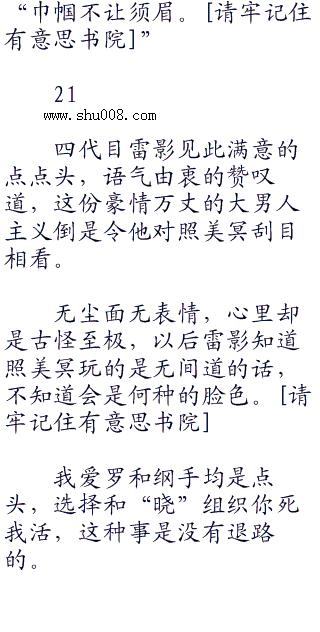 “巾帼不让须眉。[请牢记住
有意思书院]”
21
www.shu008.com
四代目雷影见此满意的
点点头，语气由衷的赞叹
道，这份豪情万丈的大男人
主义倒是令他对照美冥刮目
相看。
无尘面无表情，心里却
是古怪至极，以后雷影知道
照美冥玩的是无间道的话，
不知道会是何种的脸色。[请
牢记住有意思书院]
我爱罗和纲手均是点
头，选择和“晓”组织你死
我活，这种事是没有退路
的。